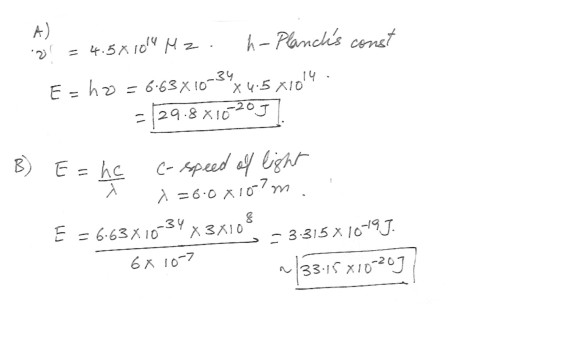 A)
'ν' = 4.5 × 10¹⁴ Hz. h - Planck's const
E = hν = 6.63 × 10⁻³⁴ × 4.5 × 10¹⁴.
= 29.8 × 10⁻²⁰ J.
B) E = hc/λ c - speed of light
λ = 6.0 × 10⁻⁷ m.
E = 6.63 × 10⁻³⁴ × 3 × 10⁸ / 6 × 10⁻⁷ = 3.315 × 10⁻¹⁹ J.
~ 33.15 × 10⁻²⁰ J